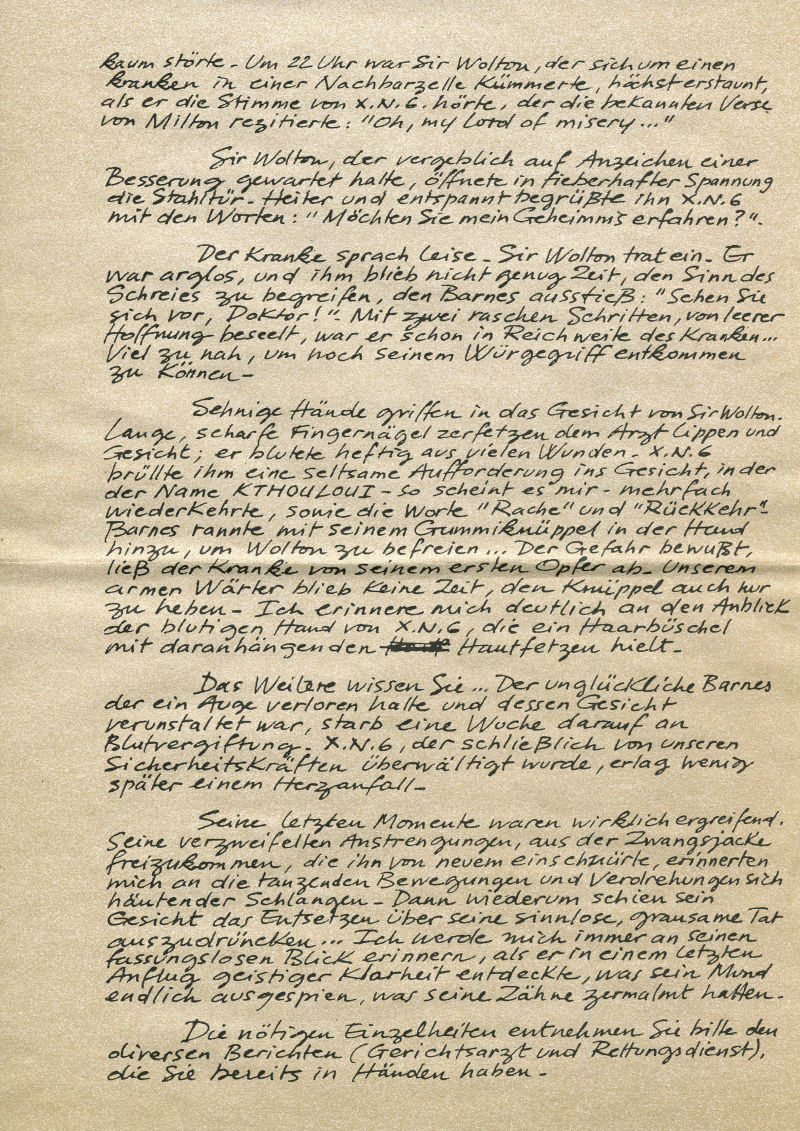 kaum störte - Um 22 Uhr war Sir Wolton, der sich um einen
kranken in einer Nachbarzelle kümmerte, höchst erstaunt,
als er die Stimme von X.N.6. hörte, der die bekannten Verse
von Milton rezitierte: "Oh, my Lord of misery..."
Sir Wolton, der vergeblich auf Anzeichen einer
Besserung gewartet hatte, öffnete in fieberhafter Spannung
die Stahltür - Heiter und entspannt begrüßte ihn X.N.6
mit den Worten: "Möchten Sie mein Geheimnis erfahren?" -
Der Kranke sprach leise - Sir Wolton trat ein - Er
war arglos, und ihm blieb nicht genug Zeit, den Sinn des
Schreies zu begreifen, den Barnes ausstieß: "Sehen Sie
sich vor, Doktor!" - Mit zwei raschen Schritten, von leerer
Hoffnung beseelt, war er schon in Reichweite des Kranken...
Viel zu nah, um noch seinem Würgegriff entkommen
zu können -
Sehnige Hände griffen in das Gesicht von Sir Wolton.
Lange, scharfe Fingernägel zerfetzen dem Arzt Lippen und
Gesicht; er blutete heftig aus vielen Wunden - X.N.6
brüllte ihm eine seltsame Aufforderung ins Gesicht, in der
der Name KTHOULOUI - so scheint es mir - mehrfach
wiederkehrte, sowie die Worte "Rache" und "Rückkehr" -
Barnes rannte mit seinem Gummiknüppel in der Hand
hinzu, um Wolton zu befreien... Der Gefahr bewußt,
ließ der Kranke von seinem ersten Opfer ab - Unserem
armen Wärter blieb keine Zeit, den Knüppel auch nur
zu heben - Ich erinnere mich deutlich an den Anblick
der blutigen Hand von X.N.6, die ein Haarbüschel
mit daranhängenden Hautfetzen hielt -
Das Weitere wissen Sie... Der unglückliche Barnes
der ein Auge verloren hatte und dessen Gesicht
verunstaltet war, starb eine Woche darauf an
Blutvergiftung - X.N.6, der schließlich von unseren
Sicherheitskräften überwältigt wurde, erlag wenig
später einem Herzanfall -
Seine letzten Momente waren wirklich ergreifend.
Seine verzweifelten Anstrengungen, aus der Zwangsjacke
freizukommen, die ihn von neuem einschnürte, erinnerten
mich an die tanzenden Bewegungen und Verdrehungen sich
häutender Schlangen - Dann wiederum schien sein
Gesicht das Entsetzen über seine sinnlose, grausame Tat
auszudrüncken... Ich werde mich immer an seinen
fassungslosen Blick erinnern, als er in einem letzten
Anflug geistiger Klarheit entdeckte, was sein Mund
endlich ausgespien, was seine Zähne zermalmt hatten -
Die nötigen Einzelheiten entnehmen Sie bitte den
diversen Berichten (Gerichtsarzt und Rettungsdienst),
die Sie bereits in Händen haben -